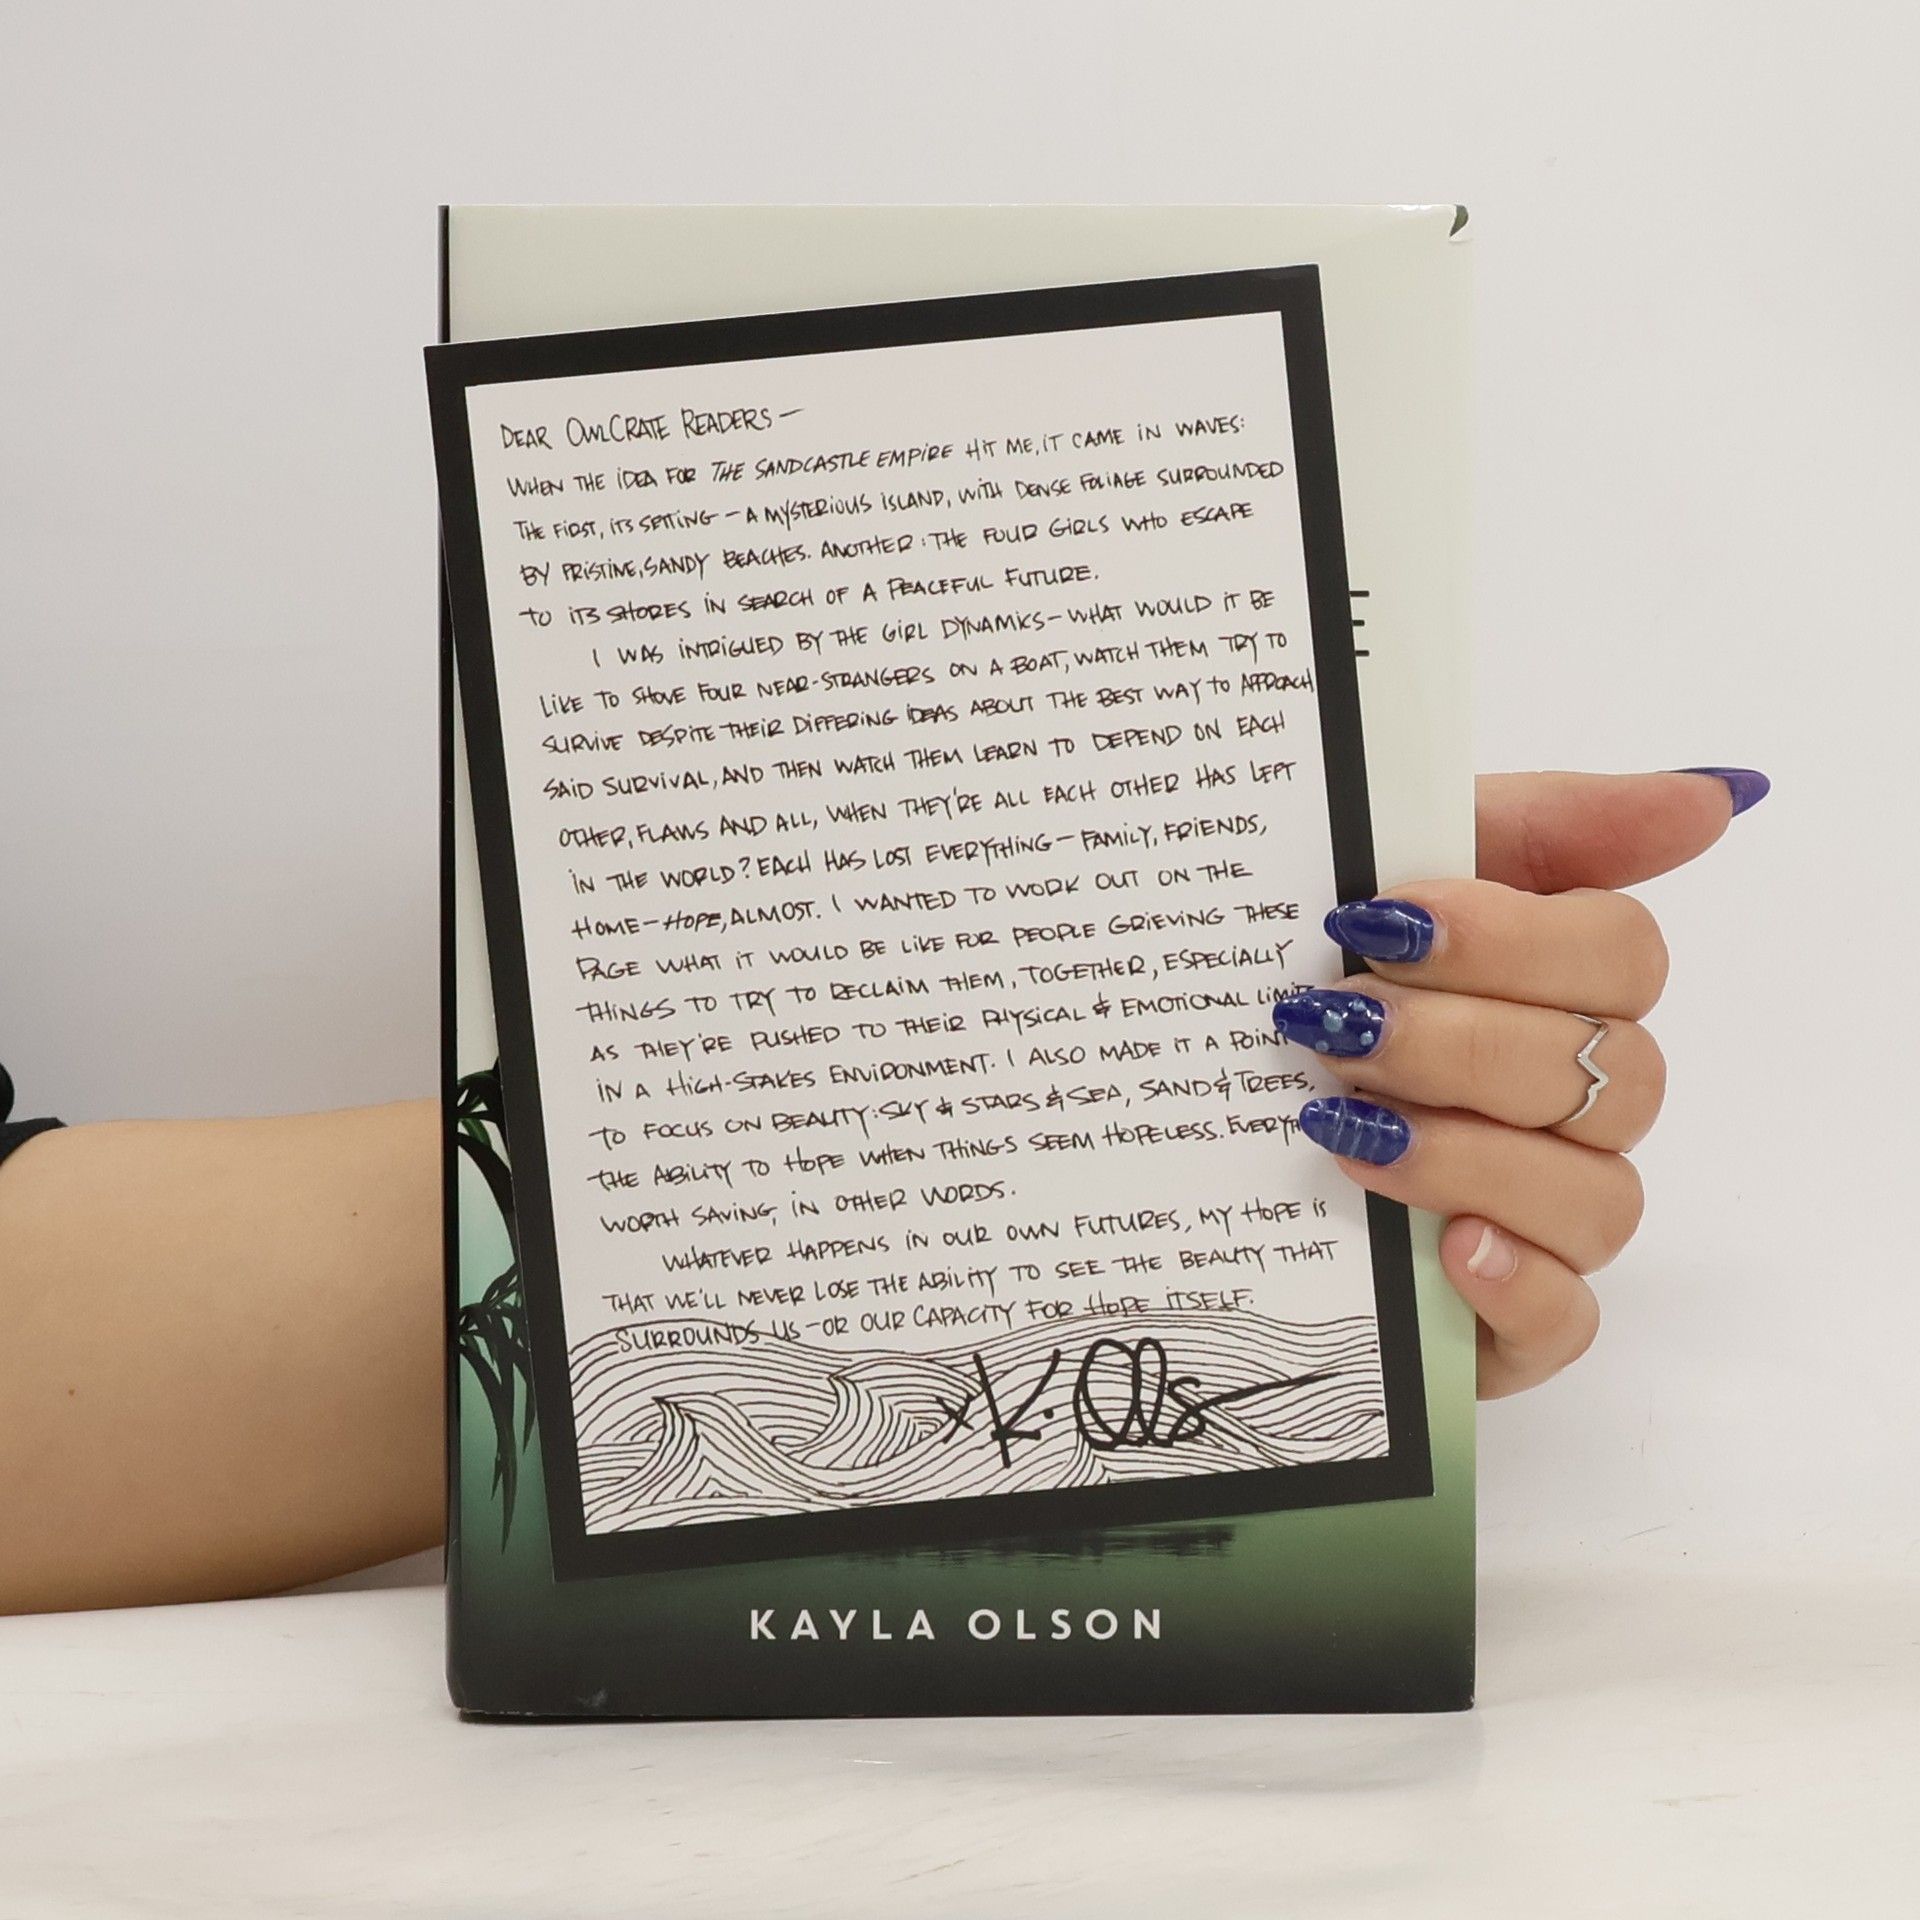 DEAR OWLCRATE READERS—
WHEN THE IDEA FOR THE SANDCASTLE EMPIRE HIT ME, IT CAME IN WAVES:
THE FIRST, ITS SETTING — A MYSTERIOUS ISLAND, WITH DENSE FOLIAGE SURROUNDED
BY PRISTINE, SANDY BEACHES. ANOTHER: THE FOUR GIRLS WHO ESCAPE
TO ITS SHORES IN SEARCH OF A PEACEFUL FUTURE.
I WAS INTRIGUED BY THE GIRL DYNAMICS—WHAT WOULD IT BE
LIKE TO SHOVE FOUR NEAR-STRANGERS ON A BOAT, WATCH THEM TRY TO
SURVIVE DESPITE THEIR DIFFERING IDEAS ABOUT THE BEST WAY TO APPROACH
SAID SURVIVAL, AND THEN WATCH THEM LEARN TO DEPEND ON EACH
OTHER, FLAWS AND ALL, WHEN THEY'RE ALL EACH OTHER HAS LEFT
IN THE WORLD? EACH HAS LOST EVERYTHING — FAMILY, FRIENDS,
HOME—HOPE, ALMOST. I WANTED TO WORK OUT ON THE
PAGE WHAT IT WOULD BE LIKE FOR PEOPLE GRIEVING THESE
THINGS TO TRY TO RECLAIM THEM, TOGETHER, ESPECIALLY
AS THEY'RE PUSHED TO THEIR PHYSICAL & EMOTIONAL LIMITS
IN A HIGH-STAKES ENVIRONMENT. I ALSO MADE IT A POINT
TO FOCUS ON BEAUTY: SKY & STARS & SEA, SAND & TREES,
THE ABILITY TO HOPE WHEN THINGS SEEM HOPELESS.
WORTH SAVING, IN OTHER WORDS.
WHATEVER HAPPENS IN OUR OWN FUTURES, MY HOPE IS
THAT WE'LL NEVER LOSE THE ABILITY TO SEE THE BEAUTY THAT
SURROUNDS US—OR OUR CAPACITY FOR HOPE ITSELF.
x K. Ols
KAYLA OLSON